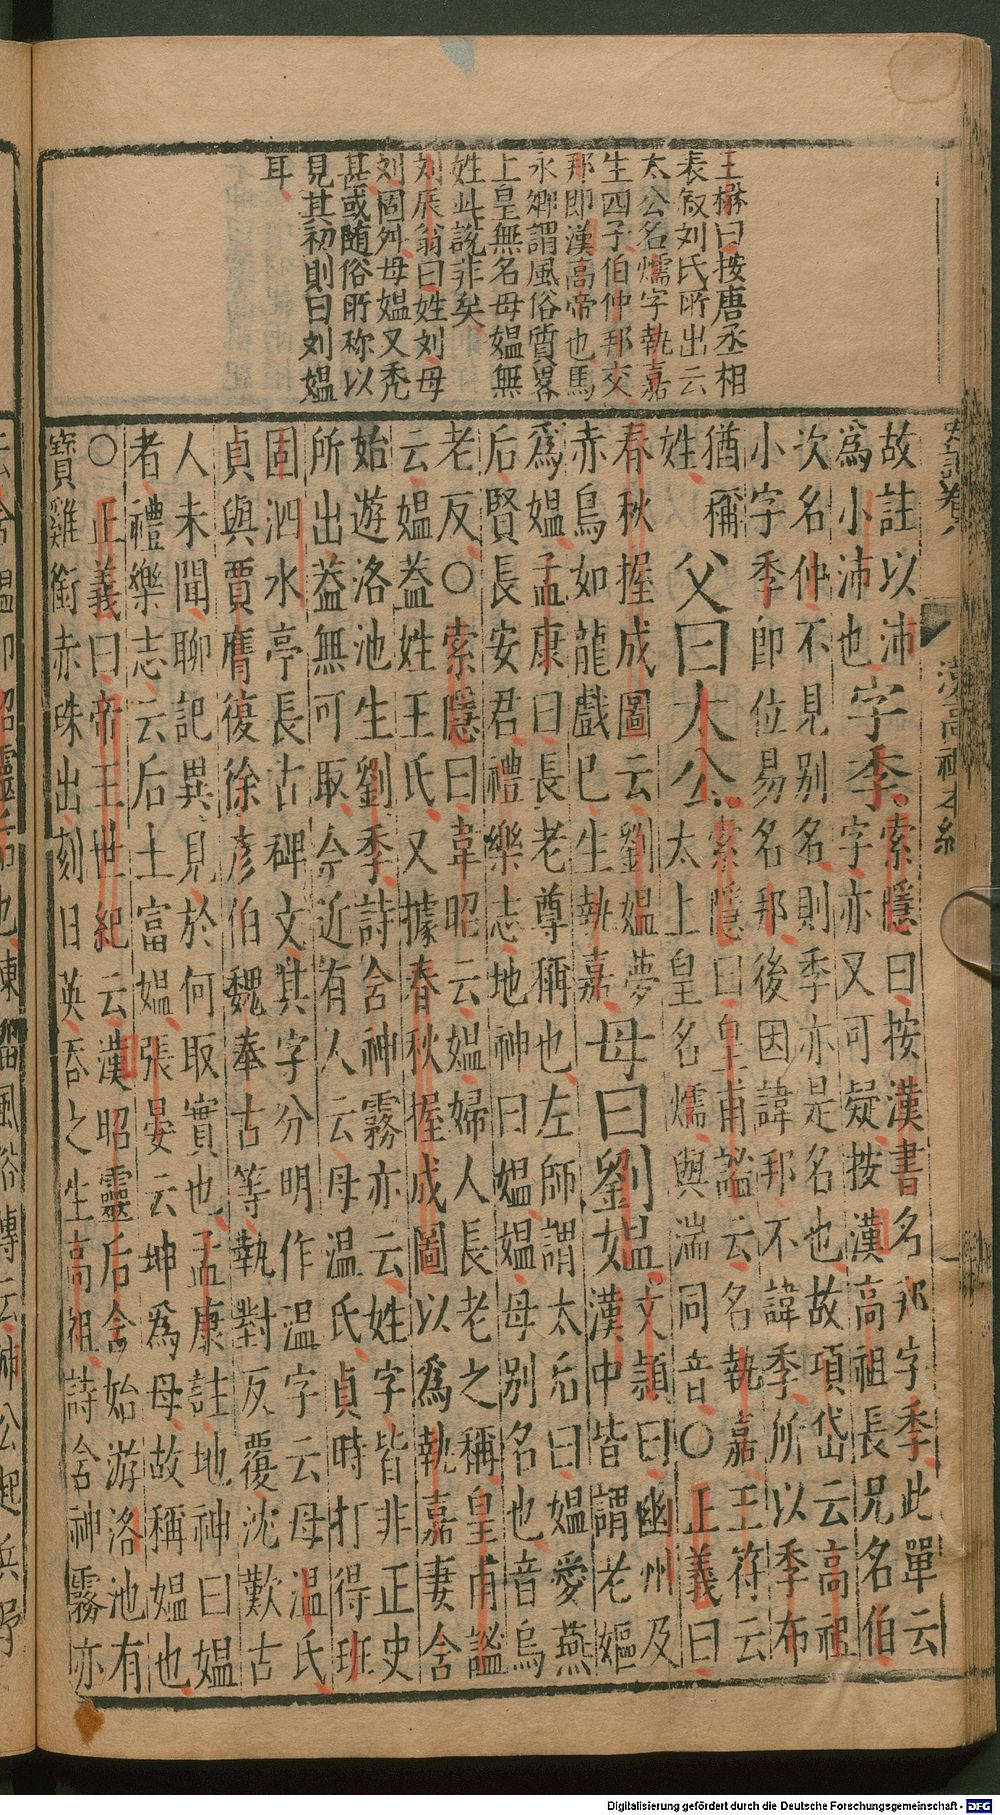 王楙曰按唐丞相
表叙刘氏所出云
太公名煓字執嘉
生四子伯仲邦交
邦即漢高帝也馬
永卿謂風俗質畧
上皇無名母媼無
姓此說非矣
刘辰翁曰姓刘母
刘固舛母媼又禿
甚或随俗所称以
見其初則曰刘媼
耳
史記卷八 漢高祖本紀 一
故註以沛
爲小沛也
字季
索隱曰按漢書名邦字季此單云
字亦又可疑按漢高祖長兄名伯
次名仲不見別名則季亦是名也故項岱云高祖
小字季即位易名邦後因諱邦不諱季所以季布
猶稱
姓
父曰太公
索隱曰皇甫謐云名執嘉王符云
太上皇名煓與湍同音○正義曰
春秋握成圖云劉媼夢
赤鳥如龍戲已生執嘉
母曰劉媼
文穎曰幽州及
漢中皆謂老嫗
爲媼孟康曰長老尊稱也左師謂太后曰媼愛燕
后賢長安君禮樂志地神曰媼媼母別名也音烏
老反○索隱曰韋昭云媼婦人長老之稱皇甫謐
云媼蓋姓王氏又據春秋握成圖以爲執嘉妻含
始遊洛池生劉季詩含神霧亦云姓字皆非正史
所出蓋無可取今近有人云母温氏貞時打得班
固泗水亭長古碑文其字分明作温字云母温氏
貞與賈膺復徐彥伯魏奉古等執對反覆沈歎古
人未聞聊記異見於何取實也孟康註地神曰媼
者禮樂志云后土富媼張晏云坤爲母故稱媼也
○正義曰帝王世紀云漢昭靈后含始游洛池有
寶雞銜赤珠出刻曰英吞之生高祖詩含神霧亦
云含媼卽昭靈后也陳留風俗傳云沛公起兵野
Digitalisierung gefördert durch die Deutsche Forschungsgemeinschaft - DFG